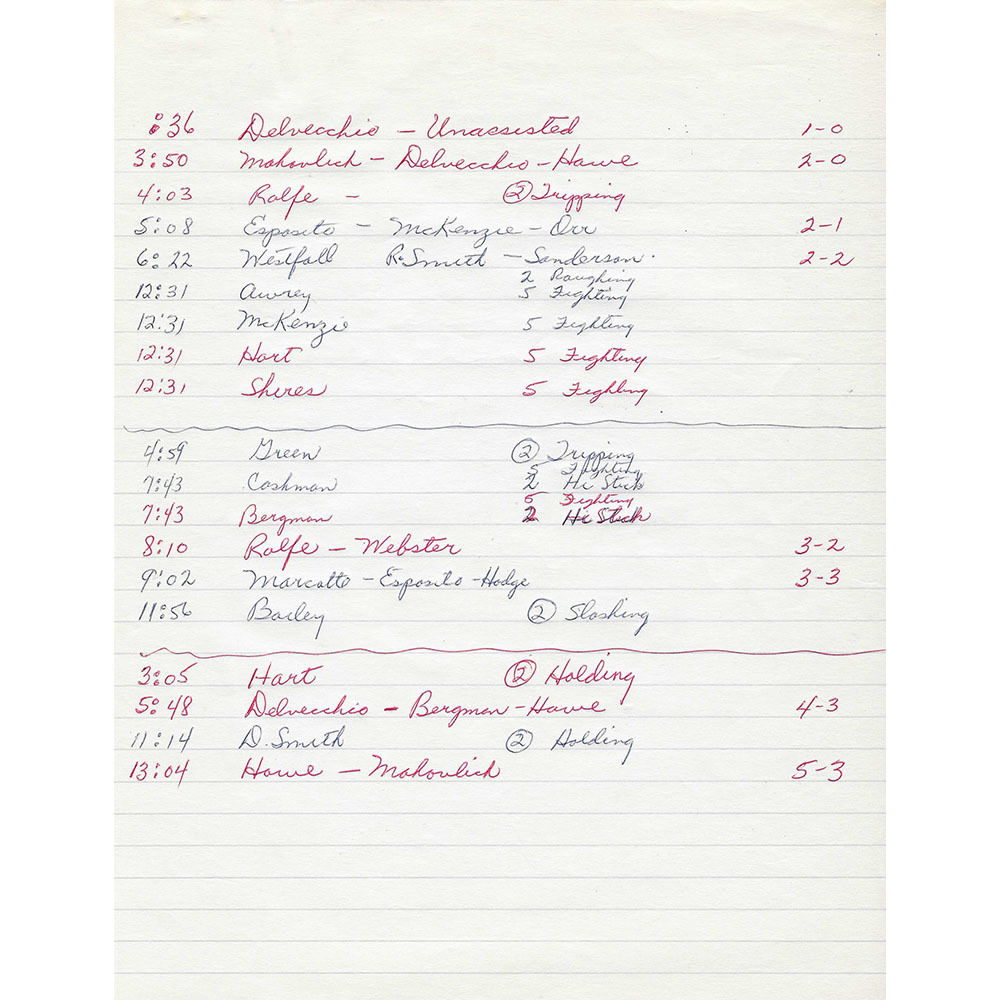 :36 Delvecchio – Unassisted 1-0
3:50 Mahovlich – Delvecchio – Howe 2-0
4:03 Rolfe – ② Tripping
5:08 Esposito – McKenzie – Orr 2-1
6:22 Westfall R. Smith – Sanderson. 2-2
2 Roughing
12:31 Awrey 5 Fighting
12:31 McKenzie 5 Fighting
12:31 Hart 5 Fighting
12:31 Shires 5 Fighting
4:59 Green ② Tripping
5 Fighting
7:43 Cashman 2 Hi Stick
5 Fighting
7:43 Bergman 2 Hi Stick
8:10 Rolfe – Webster 3-2
9:02 Marcotte – Esposito – Hodge 3-3
11:56 Bailey ② Slashing
3:05 Hart ② Holding
5:48 Delvecchio – Bergman – Howe 4-3
11:14 D. Smith ② Holding
13:04 Howe – Mahovlich 5-3